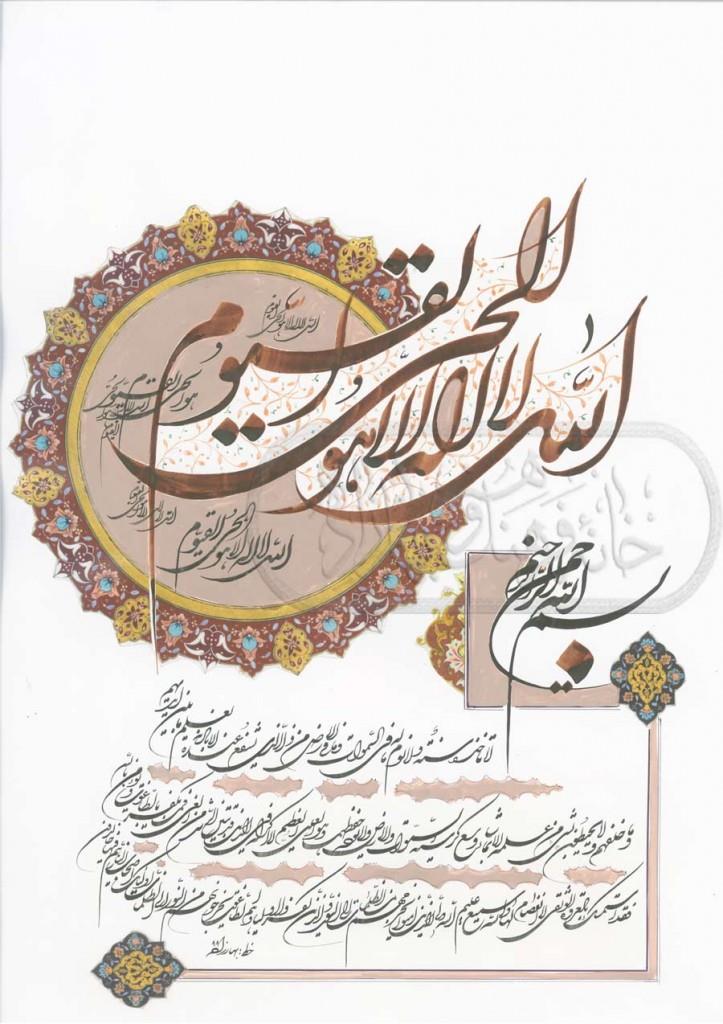 الله لا اله الا هو الحی القیوم
الله لا اله الا هو الحی القیوم
هو الحی القیوم
الله لا اله الا هو الحی القیوم
بسم الله الرحمن الرحیم
لا تاخذه سنة و لا نوم له ما فی السموات و ما فی الارض من ذالذی یشفع عنده الا باذنه یعلم ما بین ایدیهم
و ما خلفهم و لا یحیطون بشی من علمه الا بما شاء وسع کرسیه السموات و الارض و لا یوده حفظهما و هو العلی العظیم لا اکراه فی الدین قد تبین الرشد من الغی فمن یکفر بالطاغوت و یومن بالله
فقد استمسک بالعروة الوثقی لا انفصام لها و الله سمیع علیم الله ولی الذین امنوا یخرجهم من الظلمات الی النور و الذین کفروا اولیاوهم الطاغوت یخرجونهم من النور الی الظلمات اولئک اصحاب النار هم فیها خالدون
خط:
خانه فرهنگ و هنر